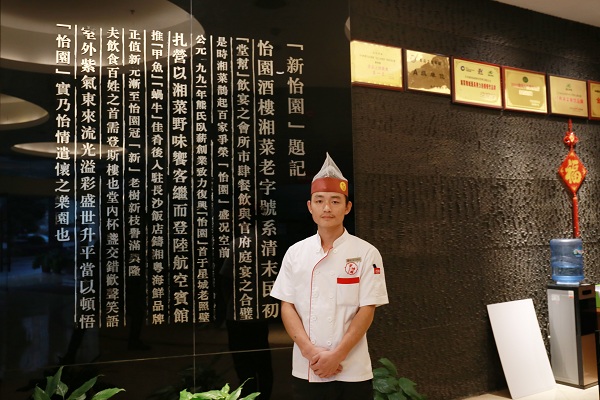 「新怡園」題記
怡園酒樓湘菜老字號系清末民初
「堂幫」飲宴之會所市肆餐飲與官府庭宴之合璧
是時湘菜鵲起百家爭榮「怡園」盛況空前
公元一九九二年熊氏臥薪創業致力復興「怡園」首于星城老照壁
扎營以湘菜野味饗客繼而登陸航空賓館
推「甲魚」「蝸牛」佳肴後入駐長沙飯店鑄湘粵海鮮品牌
正值新元漸至怡園冠「新」老樹新枝譽滿興隆
夫飲食百姓之首需登斯樓也堂內杯盞交錯歡聲笑語
室外紫氣東來流光溢彩盛世升平當以頓悟
「怡園」實乃怡情遣懷之樂園也
福